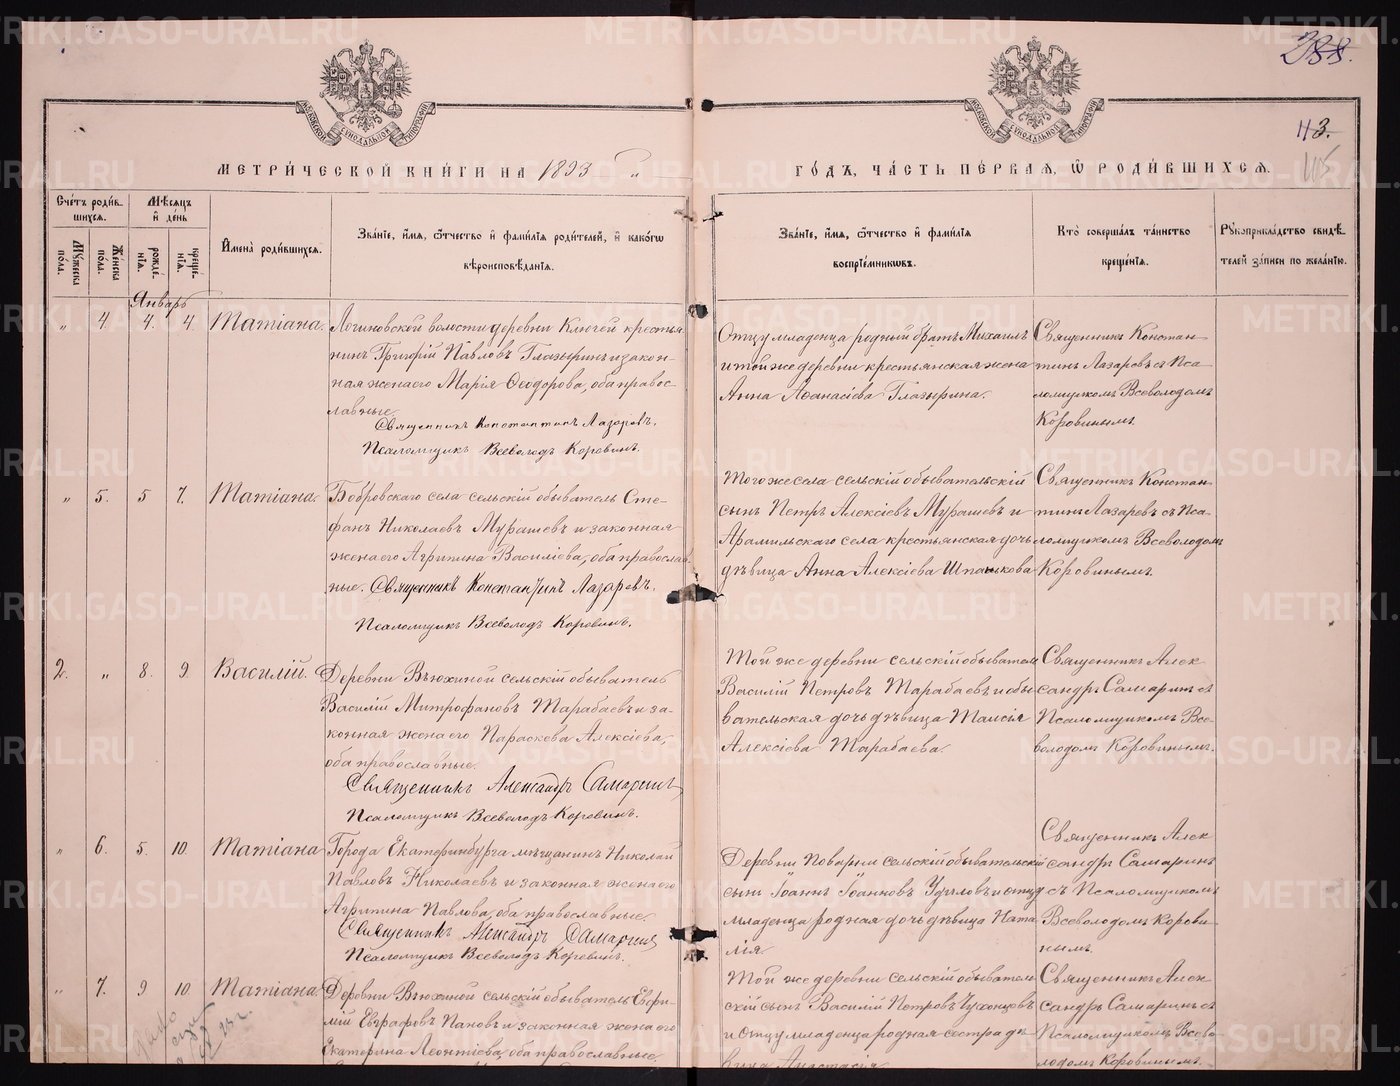 288.
113.
115
МОСКОВСКОЙ СУНОДАЛЬНОЙ ТИПОГРАФІИ
МОСКОВСКОЙ СУНОДАЛЬНОЙ ТИПОГРАФІИ
МЕТРИ́ЧЕСКОЙ КНИ́ГИ НА 1893 "
ГО́ДЪ, ЧА́СТЬ ПЕ́РВАЯ, Ѡ РОДИ́ВШИХСЯ.
Сче́тъ роди́в-
шихся.
Му́жеска по́ла.
Же́нска по́ла.
Мѣ́сяцъ
и҆ де́нь
рожде́-
нїя.
креще́-
нїя.
И҆мена̀ роди́вшихся.
Зва́нїе, и҆́мя, ѻ҆́тчество и҆ фами́лїя роди́телей, и҆ како́гѡ
вѣроисповѣ́данїя.
Зва́нїе, и҆́мя, ѻ҆́тчество и҆ фами́лїя
воспрїе́мниковъ.
Кто̀ соверша́лъ та́инство
креще́нїя.
Рꙋкоприкла́дство свидѣ́-
телей за́писи по жела́нїю.
Январь
" 4. 4. 4. Татіана.
Логиновской волости деревни Ключей крестья
нинъ Григорій Павловъ Глазыринъ и закон-
ная жена его Марія Ѳеодорова, оба правос-
лавные.
Священникъ Константинъ Лазаревъ.
Псаломщикъ Всеволодъ Коровинъ.
Отцу младенца родный братъ Михаилъ
и той же деревни крестьянская жена
Анна Аѳанасіева Глазырина.
Священникъ Констан-
тинъ Лазаревъ съ Пса-
ломщикомъ Всеволодомъ
Коровинымъ.
" 5. 5 7. Татіана.
Бобровскаго села сельскій обыватель Сте-
фанъ Николаевъ Мурашевъ и законная
жена его Агрипина Василіева, оба православ-
ные. Священникъ Константинъ Лазаревъ.
Псаломщикъ Всеволодъ Коровинъ.
Того же села сельскій обывательскій
сынъ Петръ Алексіевъ Мурашевъ и
Арамильскаго села крестьянская дочь
дѣвица Анна Алексіева Шпанькова
Священникъ Констан-
тинъ Лазаревъ съ Пса-
ломщикомъ Всеволодомъ
Коровинымъ.
2. " 8. 9. Василій.
Деревни Вьюхиной сельскій обыватель
Василій Митрофановъ Тарабаевъ и за-
конная жена его Параскева Алексіева,
оба православные.
Священникъ Александръ Самаринъ
Псаломщикъ Всеволодъ Коровинъ.
Той же деревни сельскій обыватель
Василій Петровъ Тарабаевъ и обы-
вательская дочь дѣвица Таисія
Алексіева Тарабаева.
Священникъ Алек-
сандръ Самаринъ съ
Псаломщикомъ Все-
володомъ Коровинымъ.
" 6. 5. 10. Татіана
Города Екатеринбурга мѣщанинъ Николай
Павловъ Николаевъ и законная жена его
Агрипина Павлова, оба православные.
Священникъ Александръ Самаринъ
Псаломщикъ Всеволодъ Коровинъ.
Деревни Поварни сельскій обывательскій
сынъ Іоаннъ Іоанновъ и отцу
младенца родная дочь дѣвица Ната-
лія.
Священникъ Алек-
сандръ Самаринъ
съ Псаломщикомъ
Всеволодомъ Корови-
нымъ.
" 7. 9 10. Татіана.
Деревни Вьюхиной сельскій обыватель Евфи-
мій Евграфовъ Пановъ и законная жена его
Екатерина Леонтіева, оба православные.
Той же деревни сельскій обыватель-
скій сынъ Василій Петровъ Чухонцовъ
и отцу младенца родная сестра дѣ-
вица Анастасія
Священникъ Алек-
сандръ Самаринъ съ
Псаломщикомъ Всево-
лодомъ Коровинымъ.
METRIKI.GASO-URAL.RU